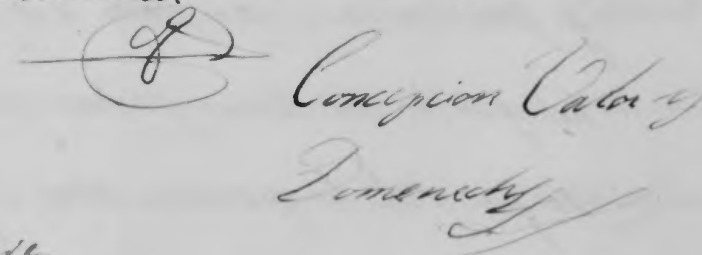 Concepcion Valor y
Domenech